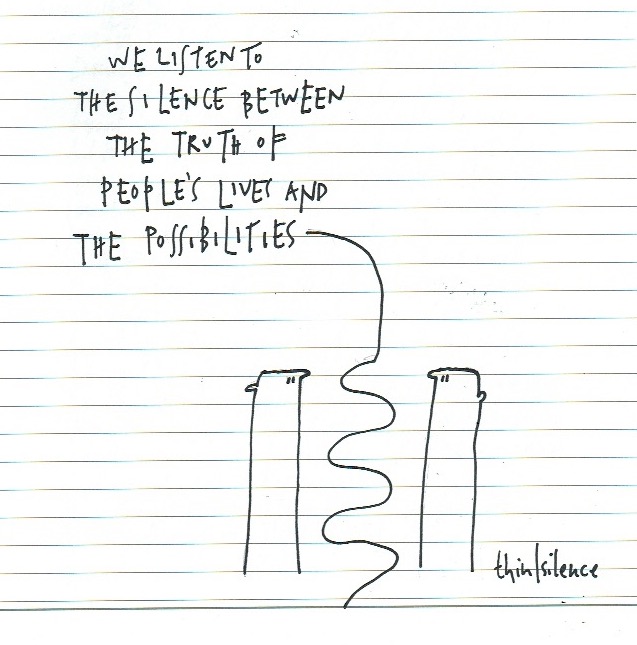 WE LISTEN TO
THE SILENCE BETWEEN
THE TRUTH OF
PEOPLE'S LIVES AND
THE POSSIBILITIES
thin/silence